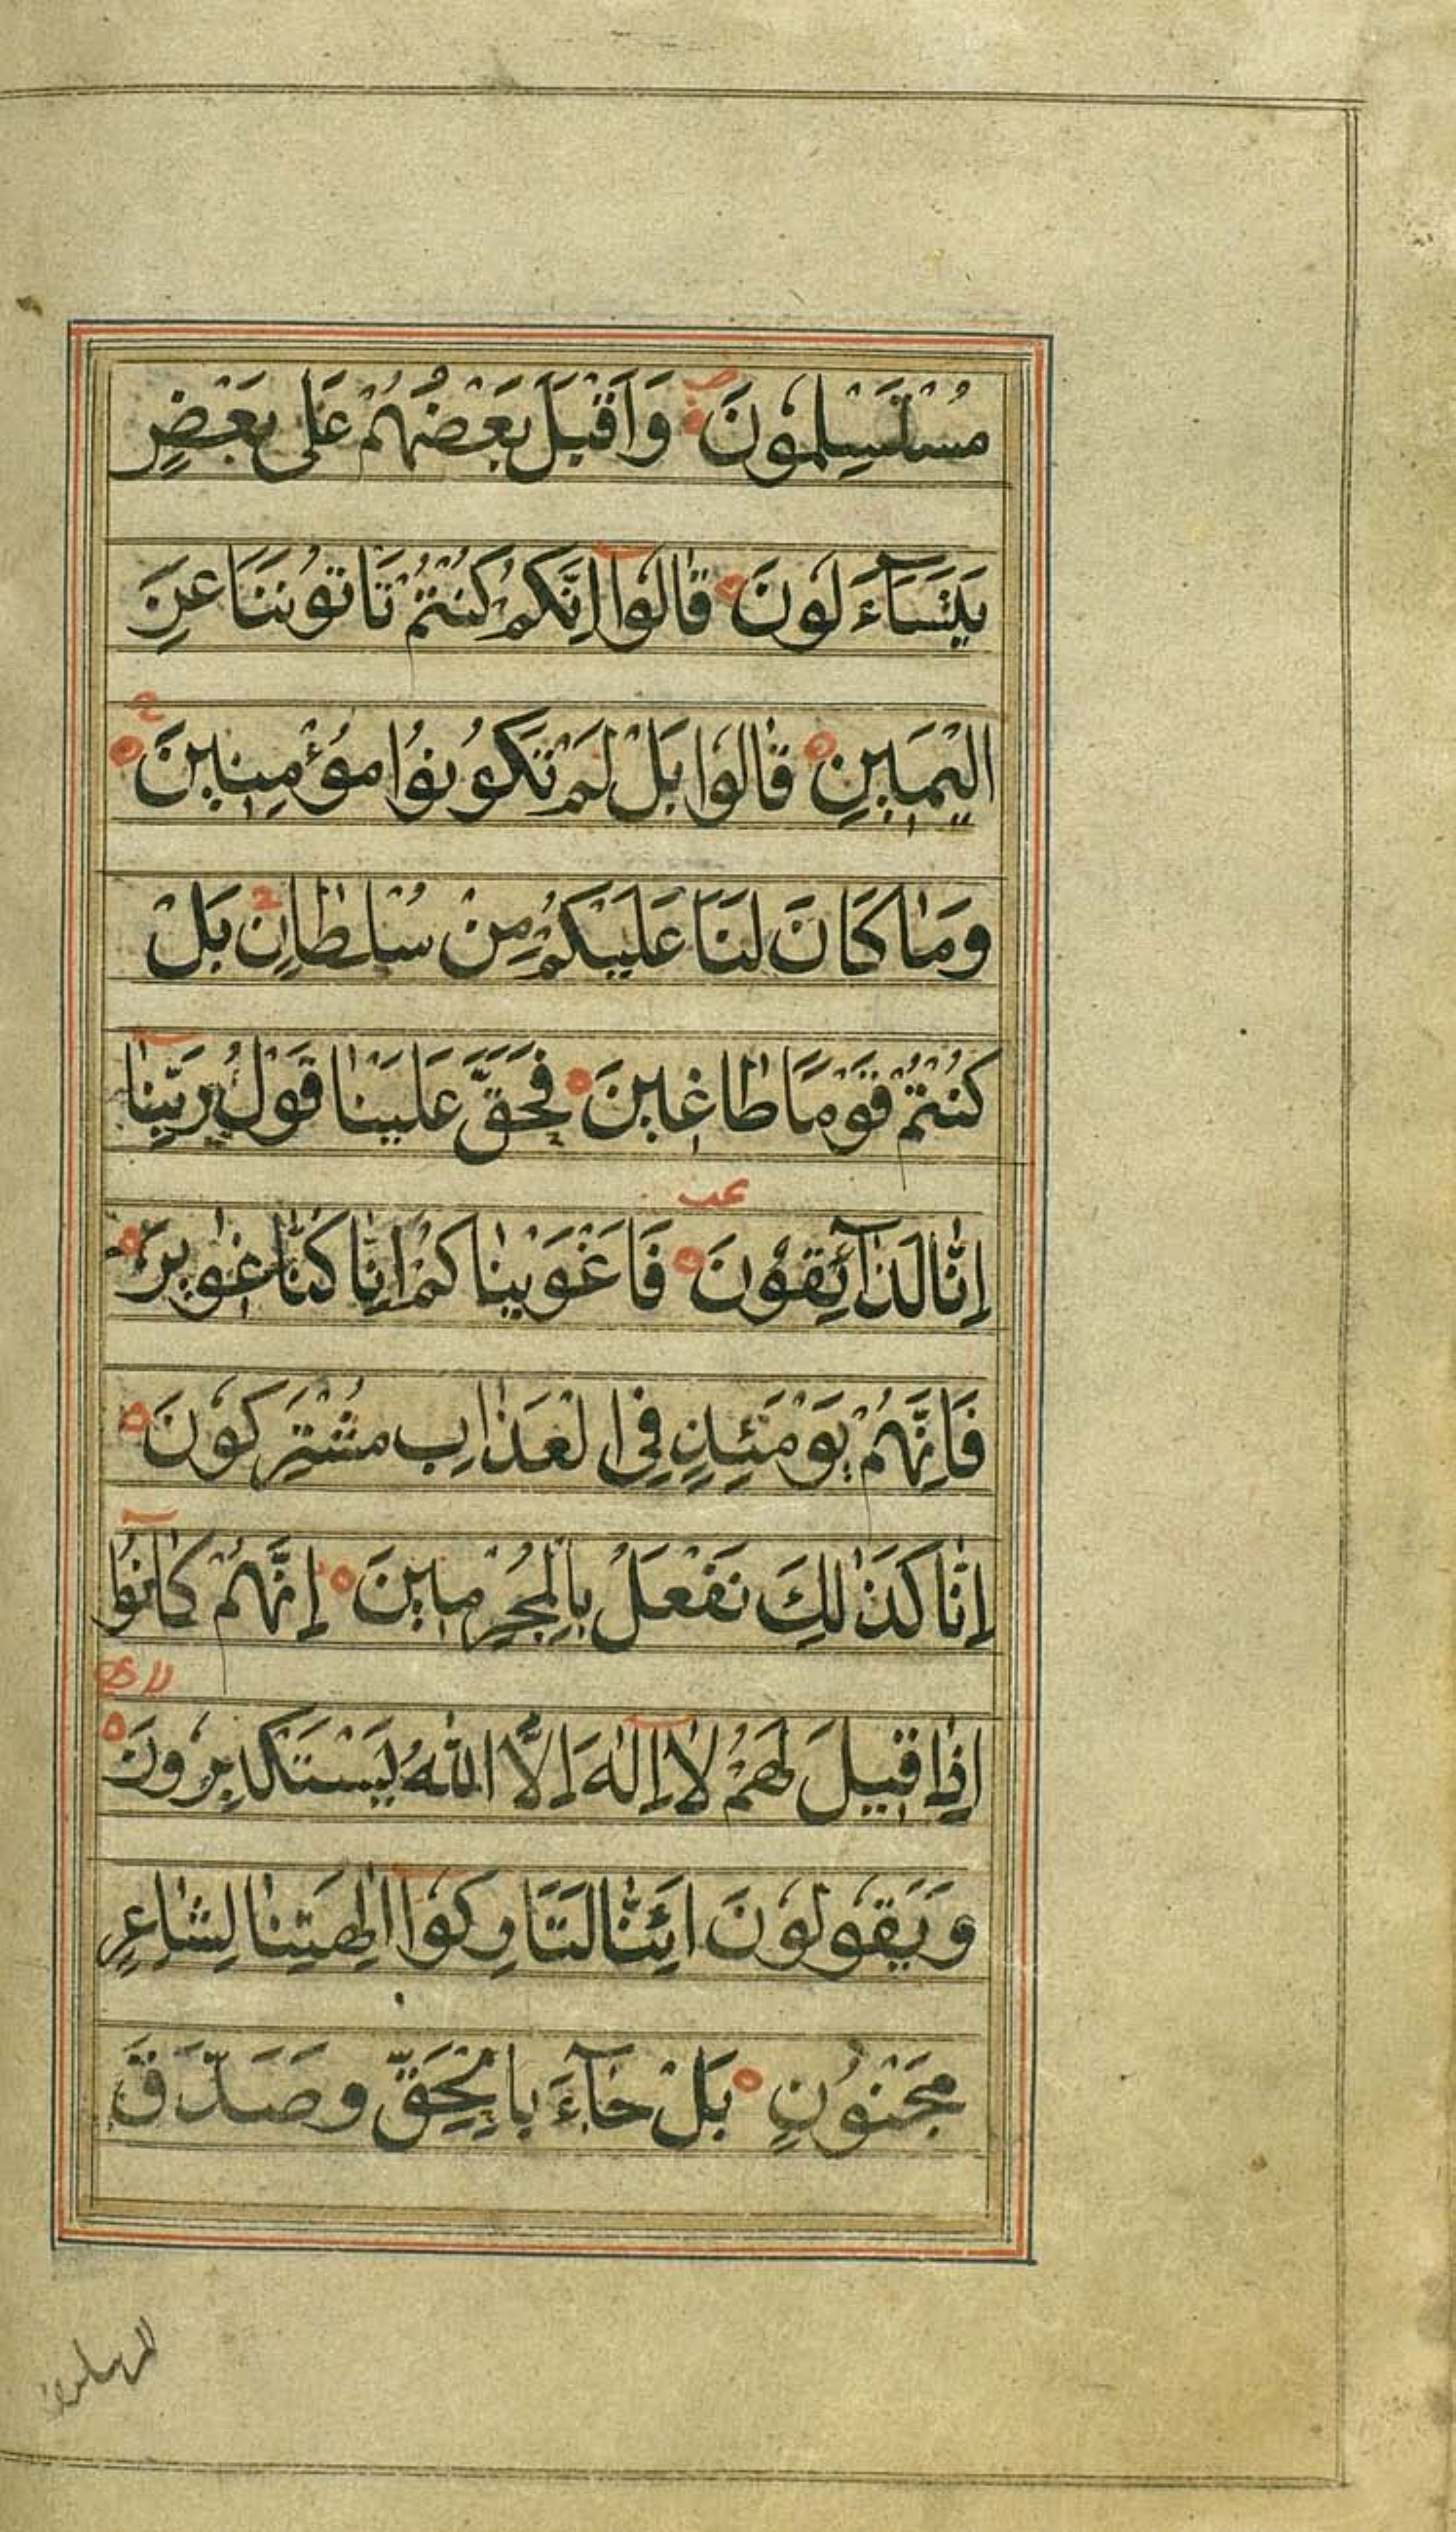 مُسْتَسْلِمُونَ وَاَقْبَلَ بَعْضُهُمْ عَلٰى بَعْضٍ
يَتَسَآءَلُونَ قَالُوا اِنَّكُمْ كُنْتُمْ تَاْتُونَنَا عَنِ
الْيَمِينِ قَالُوا بَلْ لَمْ تَكُونُوا مُؤْمِنِينَ
وَمَا كَانَ لَنَا عَلَيْكُمْ مِنْ سُلْطَانٍ بَلْ
كُنْتُمْ قَوْمًا طَاغِينَ فَحَقَّ عَلَيْنَا قَوْلُ رَبِّنَا
اِنَّا لَذَآئِقُونَ فَاَغْوَيْنَاكُمْ اِنَّا كُنَّا غَاوِينَ
فَاِنَّهُمْ يَوْمَئِذٍ فِي الْعَذَابِ مُشْتَرِكُونَ
اِنَّا كَذٰلِكَ نَفْعَلُ بِالْمُجْرِمِينَ اِنَّهُمْ كَانُوا
اِذَا قِيلَ لَهُمْ لَا اِلٰهَ اِلَّا اللّٰهُ يَسْتَكْبِرُونَ
وَيَقُولُونَ اَئِنَّا لَتَارِكُوا اٰلِهَتِنَا لِشَاعِرٍ
مَجْنُونٍ بَلْ جَآءَ بِالْحَقِّ وَصَدَّقَ
المرسلين